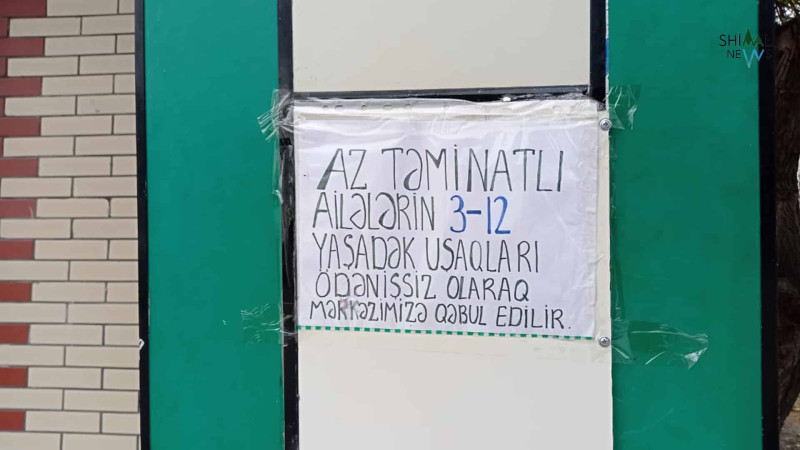 SHIMAL
NEWS
AZ TƏMİNATLI
AİLƏLƏRİN 3-12
YAŞADƏK UŞAQLARI
ÖDƏNİŞSİZ OLARAQ
MƏRKƏZİMİZƏ QƏBUL EDİLİR.